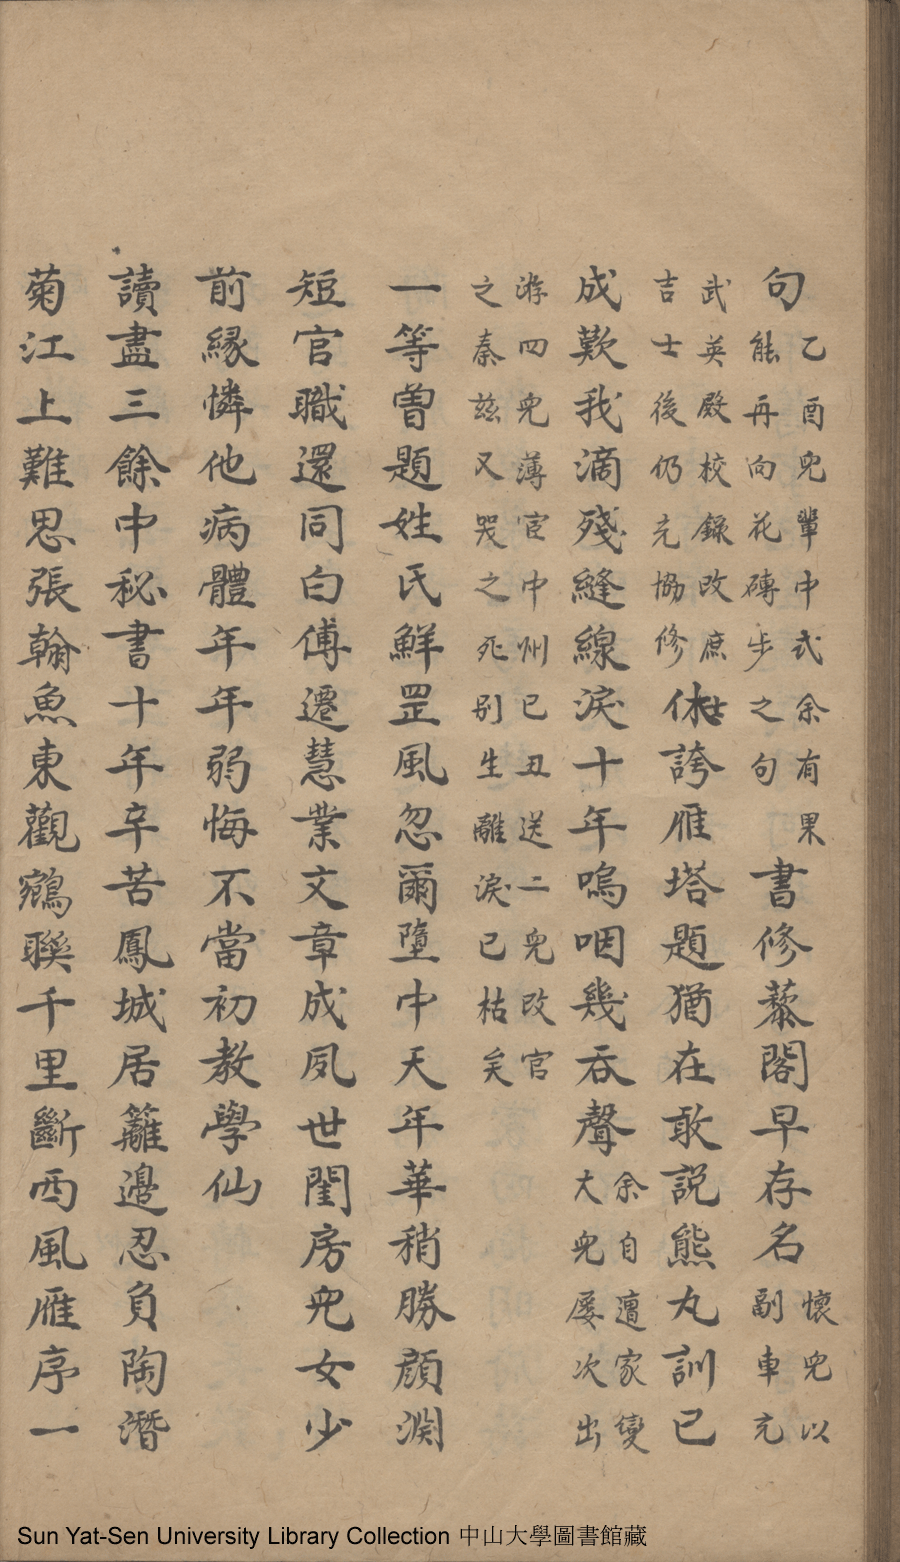 句乙酉兒輩中式余有果能再向花磚步之句書修藜閣早存名懷兒以副車充
武英殿校錄改庶吉士後仍充協修休誇雁塔題猶在敢説熊丸訓已
成歎我滴殘縫線淚十年嗚咽幾吞聲余自遭家變大兒屢次出
游四兒薄宦中州已丑送二兒改官之秦兹又哭之死别生離淚已枯矣
一等曾題姓氏鮮罡風忽爾墮中天年華稍勝顔淵
短官職還同白傅遷慧業文章成夙世閨房兒女少
前緣憐他病體年年弱悔不當初教學仙
讀盡三餘中秘書十年辛苦鳳城居籬邊忍負陶潛
菊江上難思張翰魚東觀鵷聯千里斷西風雁序一
Sun Yat-Sen University Library Collection 中山大學圖書館藏